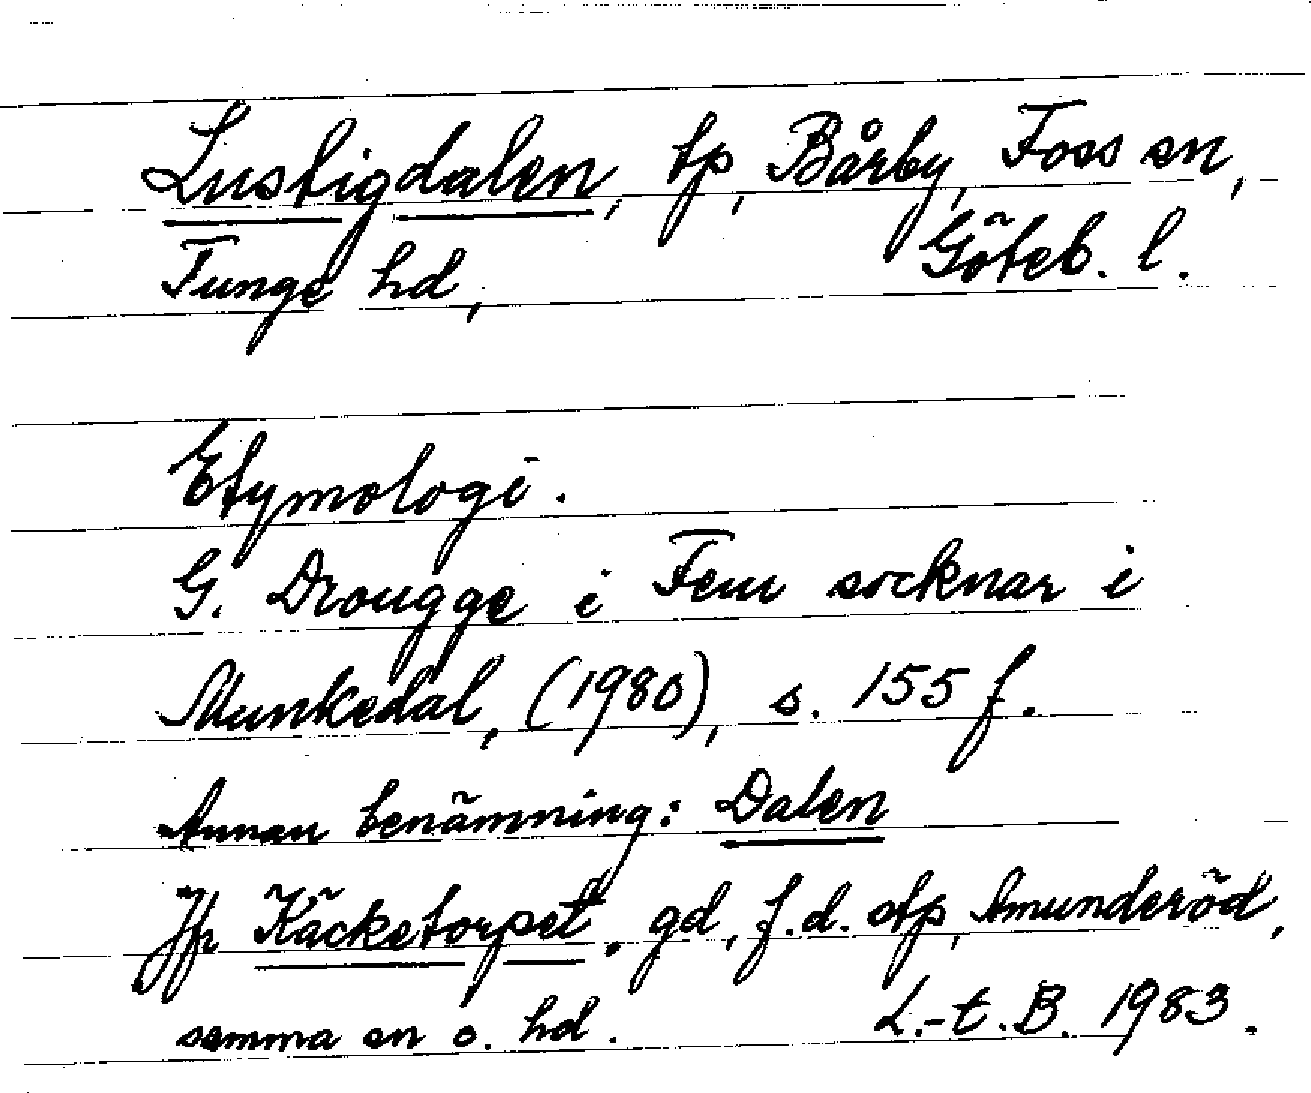 Lustigdalen, tp, Bårby, Foss sn,
Tunge hd, Göteb. l.
Etymologi.
G. Drougge i Fem socknar i
Munkedal, (1980), s. 155 f.
Annan benämning: Dalen
Jfr Käcketorpet, gd, f.d. stp, Amunderöd,
samma sn o. hd. L.-t. B. 1983.